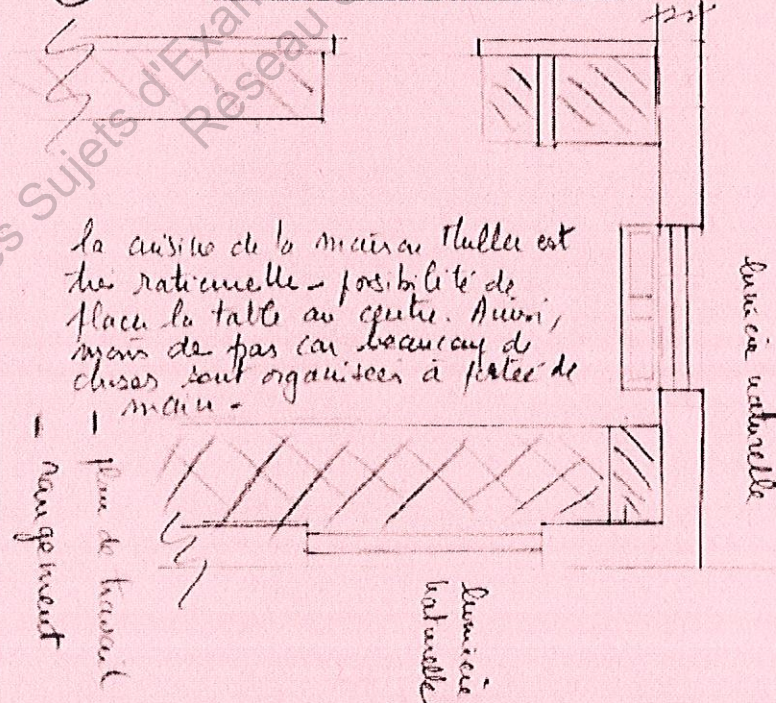 des Sujets d'Exam
Réseau
la cuisine de la maison Muller est
très rationnelle - possibilité de
placer la table au centre. Ainsi,
moins de pas car beaucoup de
choses sont organisées à portée de
main -
lumière naturelle
plan de travail
rangement
lumière
naturelle